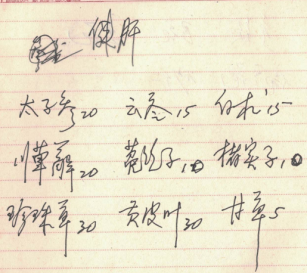 健肝
太子参20 云苓15 白术15
川萆薢20 菟丝子10 楮实子10
珍珠草30 黄皮叶30 甘草5